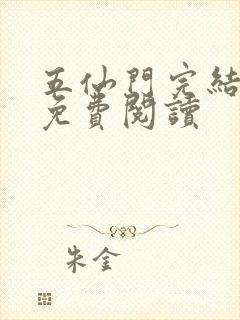 五仙門完結
免費閱讀
朱金